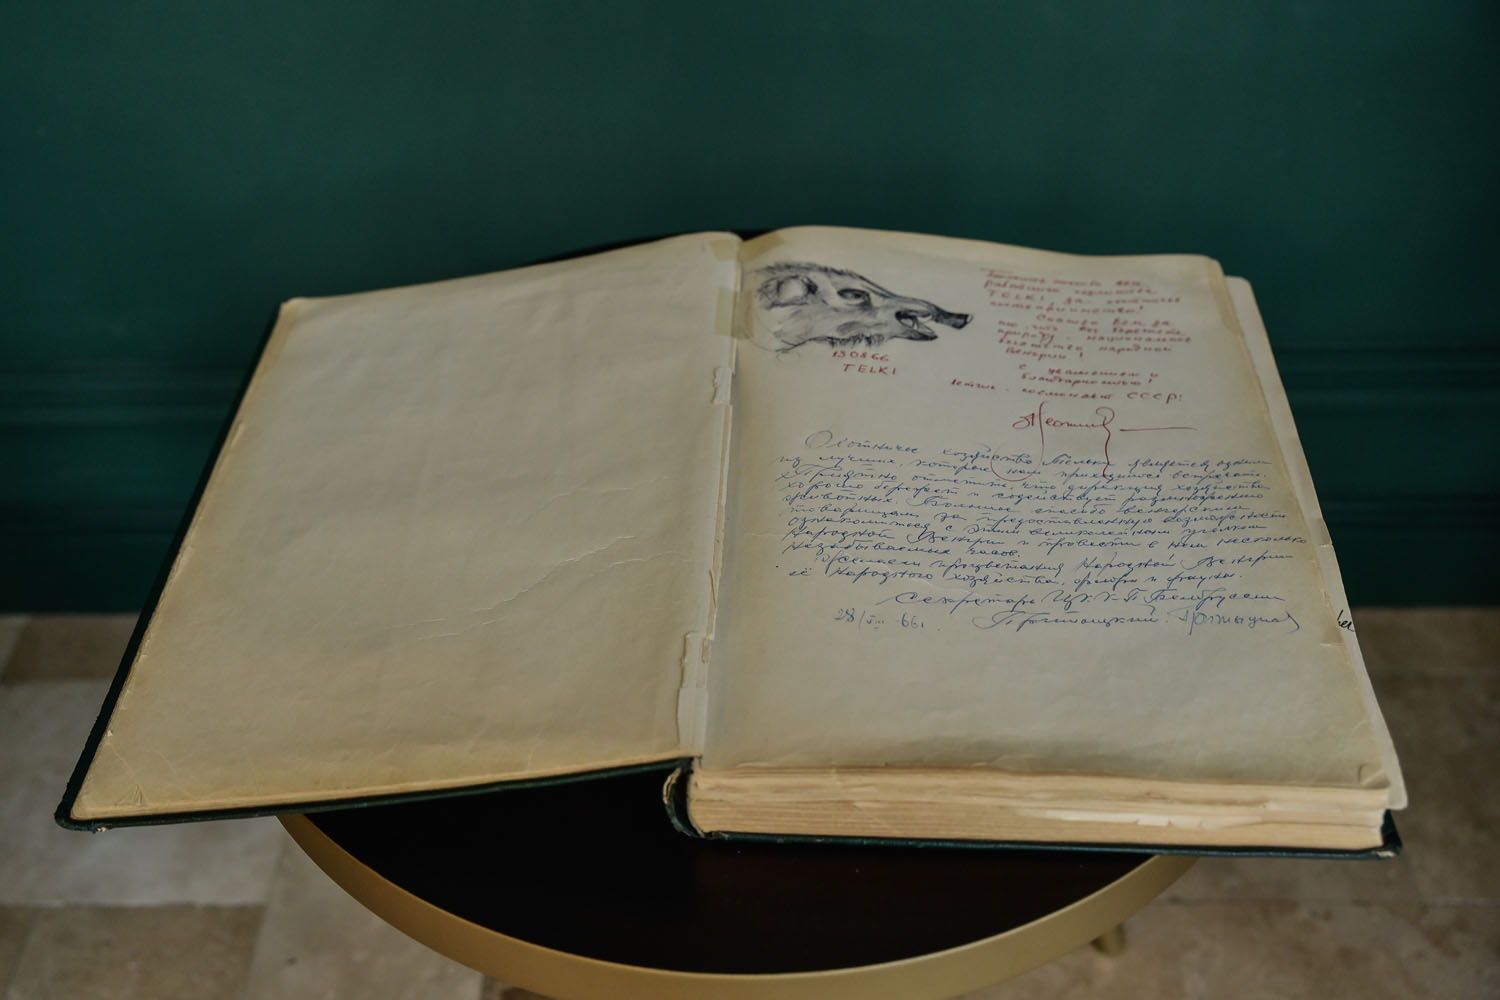 13 08 66
TELKI
Большое спасибо вам,
работники хозяйства
TELKI за отличное
гостеприимство!
Спасибо Вам за
то, что Вы бережете
природу - национальное
богатство народной
Венгрии!
С уважением и
благодарностью!
Летчик - космонавт СССР:
АЛеонов
Охотничье хозяйство Тельки является одним
из лучших, которые нам приходилось встречать.
Приятно отметить, что дирекция хозяйства
хорошо бережет и содействует размножению
животных. Большое спасибо венгерским
товарищам за предоставленную возможность
ознакомиться с этим великолепным уголком
Народной Венгрии и провести в нем несколько
незабываемых часов.
Желаем процветания Народной Венгрии
её Народного хозяйства, флоры и фауны.
Секретарь ЦК К-П Белоруссии
28/VIII 66г. Притыцкий.